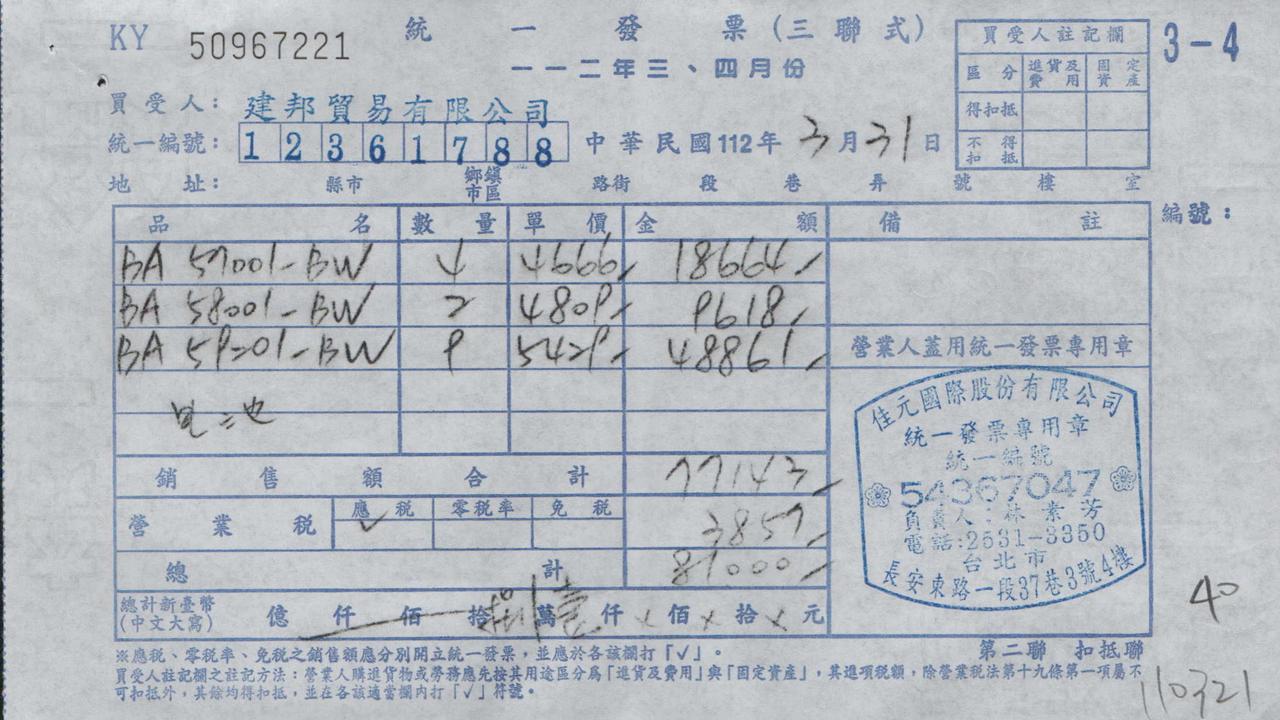 KY 50967221 統一發票(三聯式) 3-4
一一二年三、四月份
買受人註記欄
區分 進貨及費用 固定資產
得扣抵
不得扣抵
買受人: 建邦貿易有限公司
統一編號: 12361788 中華民國112年3月31日
地址: 縣市 鄉鎮市區 路街 段 巷 弄 號 樓 室
品名 數量 單價 金額 備註 編號:
BA 57001-BW 4 4666 18664
BA 58001-BW 2 4809 9618
BA 59201-BW 9 5429 48861
營業人蓋用統一發票專用章
銷售額合計 77143
營業稅 應稅 ✓ 零稅率 免稅 3857
總計 81000
總計新臺幣(中文大寫) 億 仟 佰 拾捌萬壹仟 x 佰 x 拾 x 元
佳元國際股份有限公司
統一發票專用章
統一編號
54367047
負責人:林素芳
電話:2531-3350
台北市
長安東路一段37巷3號4樓
40
※應稅、零稅率、免稅之銷售額應分別開立統一發票,並應於各該欄打「✓」。
第二聯 扣抵聯
買受人註記欄之註記方法:營業人購進貨物或勞務應先按其用途區分為「進貨及費用」與「固定資產」,其進項稅額,除營業稅法第十九條第一項屬不
可扣抵外,其餘均得扣抵,並在各該適當欄內打「✓」符號。
110321